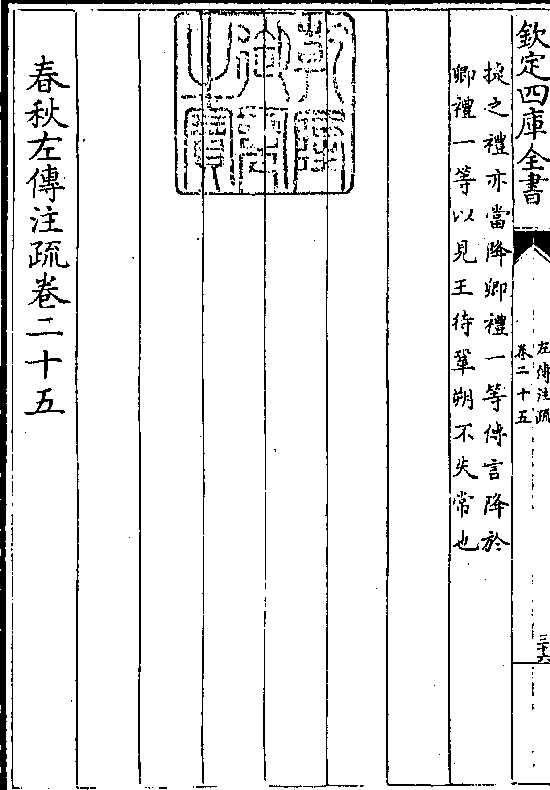 欽定四庫全書
左傳注疏
卷二十五
三十六
擯之禮亦當降卿禮一等傳言降於
卿禮一等以見王待鞏朔不失常也
春秋左傳注疏卷二十五